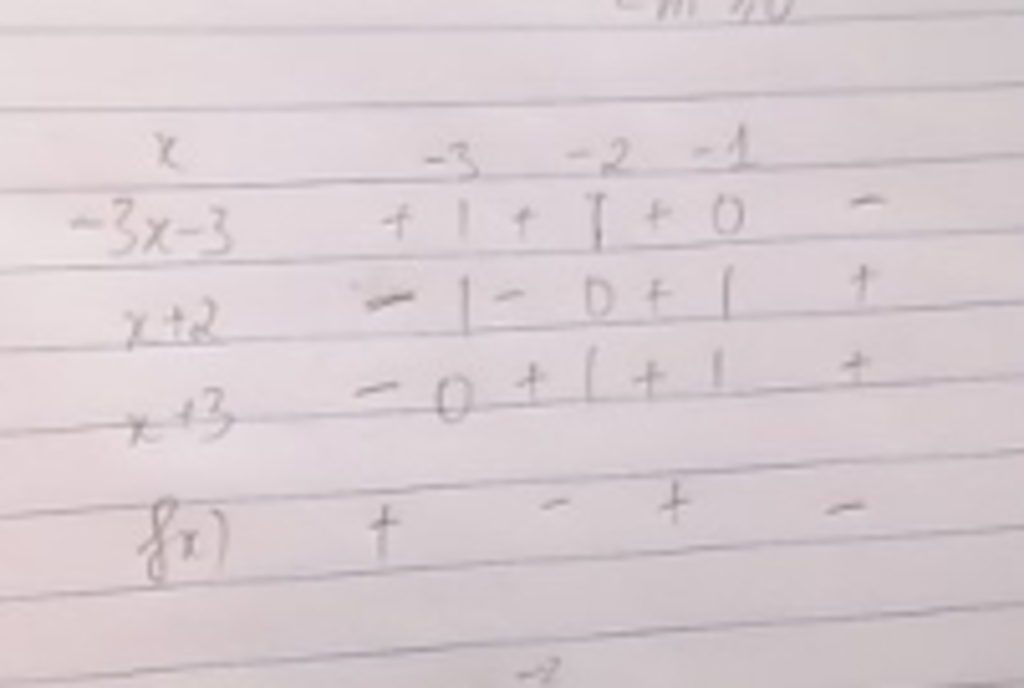 x -3 -2 -1
-3x-3 + | + | + 0 -
x+2 - | - 0 + | +
x+3 - 0 + | + | +
f(x) + - + -